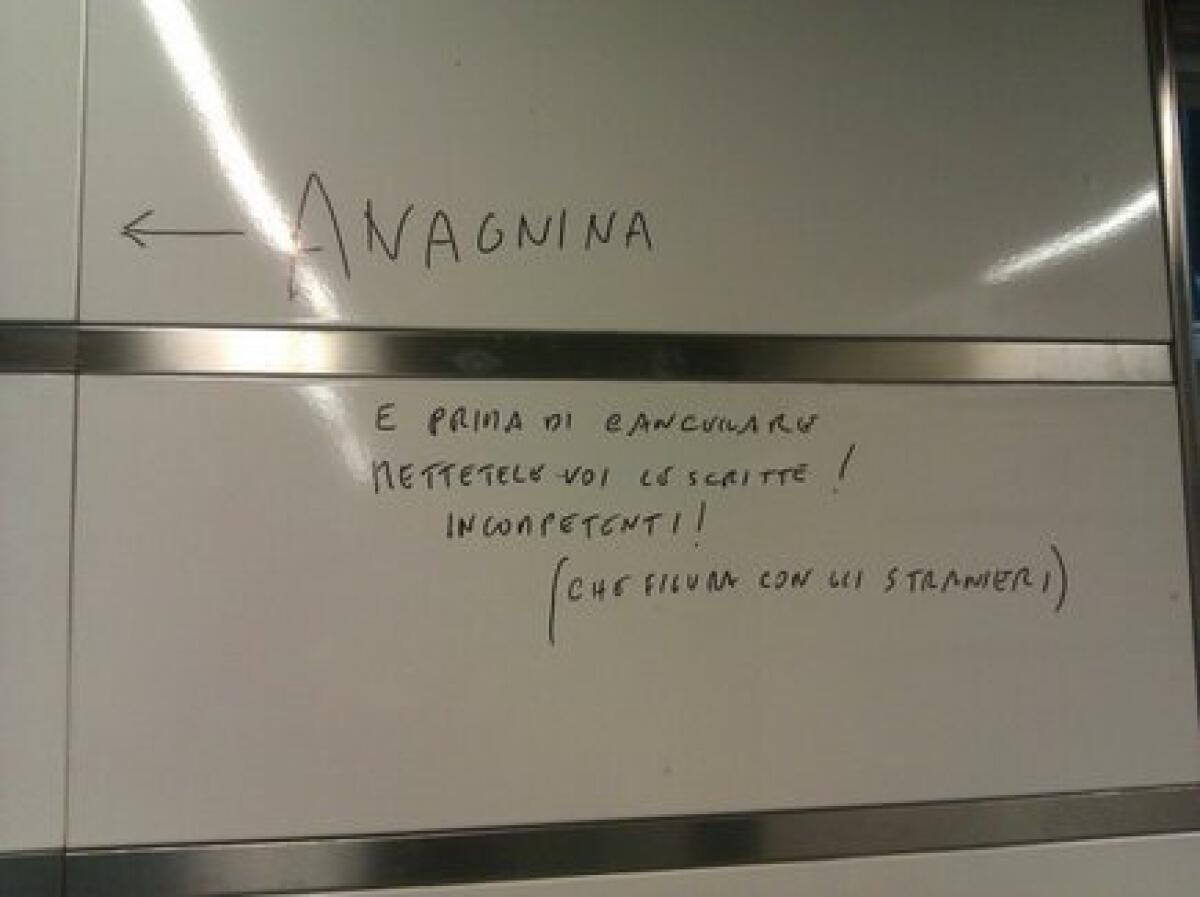 ← ANAGNINA
E PRIMA DI CANCELLARE
METTETELE VOI LE SCRITTE!
INCOMPETENTI!
(CHE FIGURA CON GLI STRANIERI)